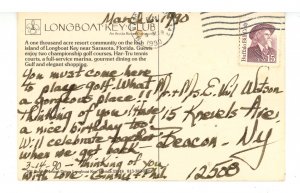 March 6, 1990
LONGBOAT KEY CLUB
A one thousand acre resort community on the lush
island of Longboat Key near Sarasota, Florida. Games
enjoy two championship golf courses, Har-Tru tennis
courts, a full-service marina, gourmet dining on the
Gulf and elegant shopping.
You must come here
to place golf. What
a gorgeous place.
Thinking of you. Have
a nice birthday to
Will celebrate together
when we get back.
3-14-90 - thinking of you
With love - &
Mr + Mrs E. Wil Watson
15 Knevels Ave,
Beacon - NY
12508
Buffalo Bill Cody
USA
15